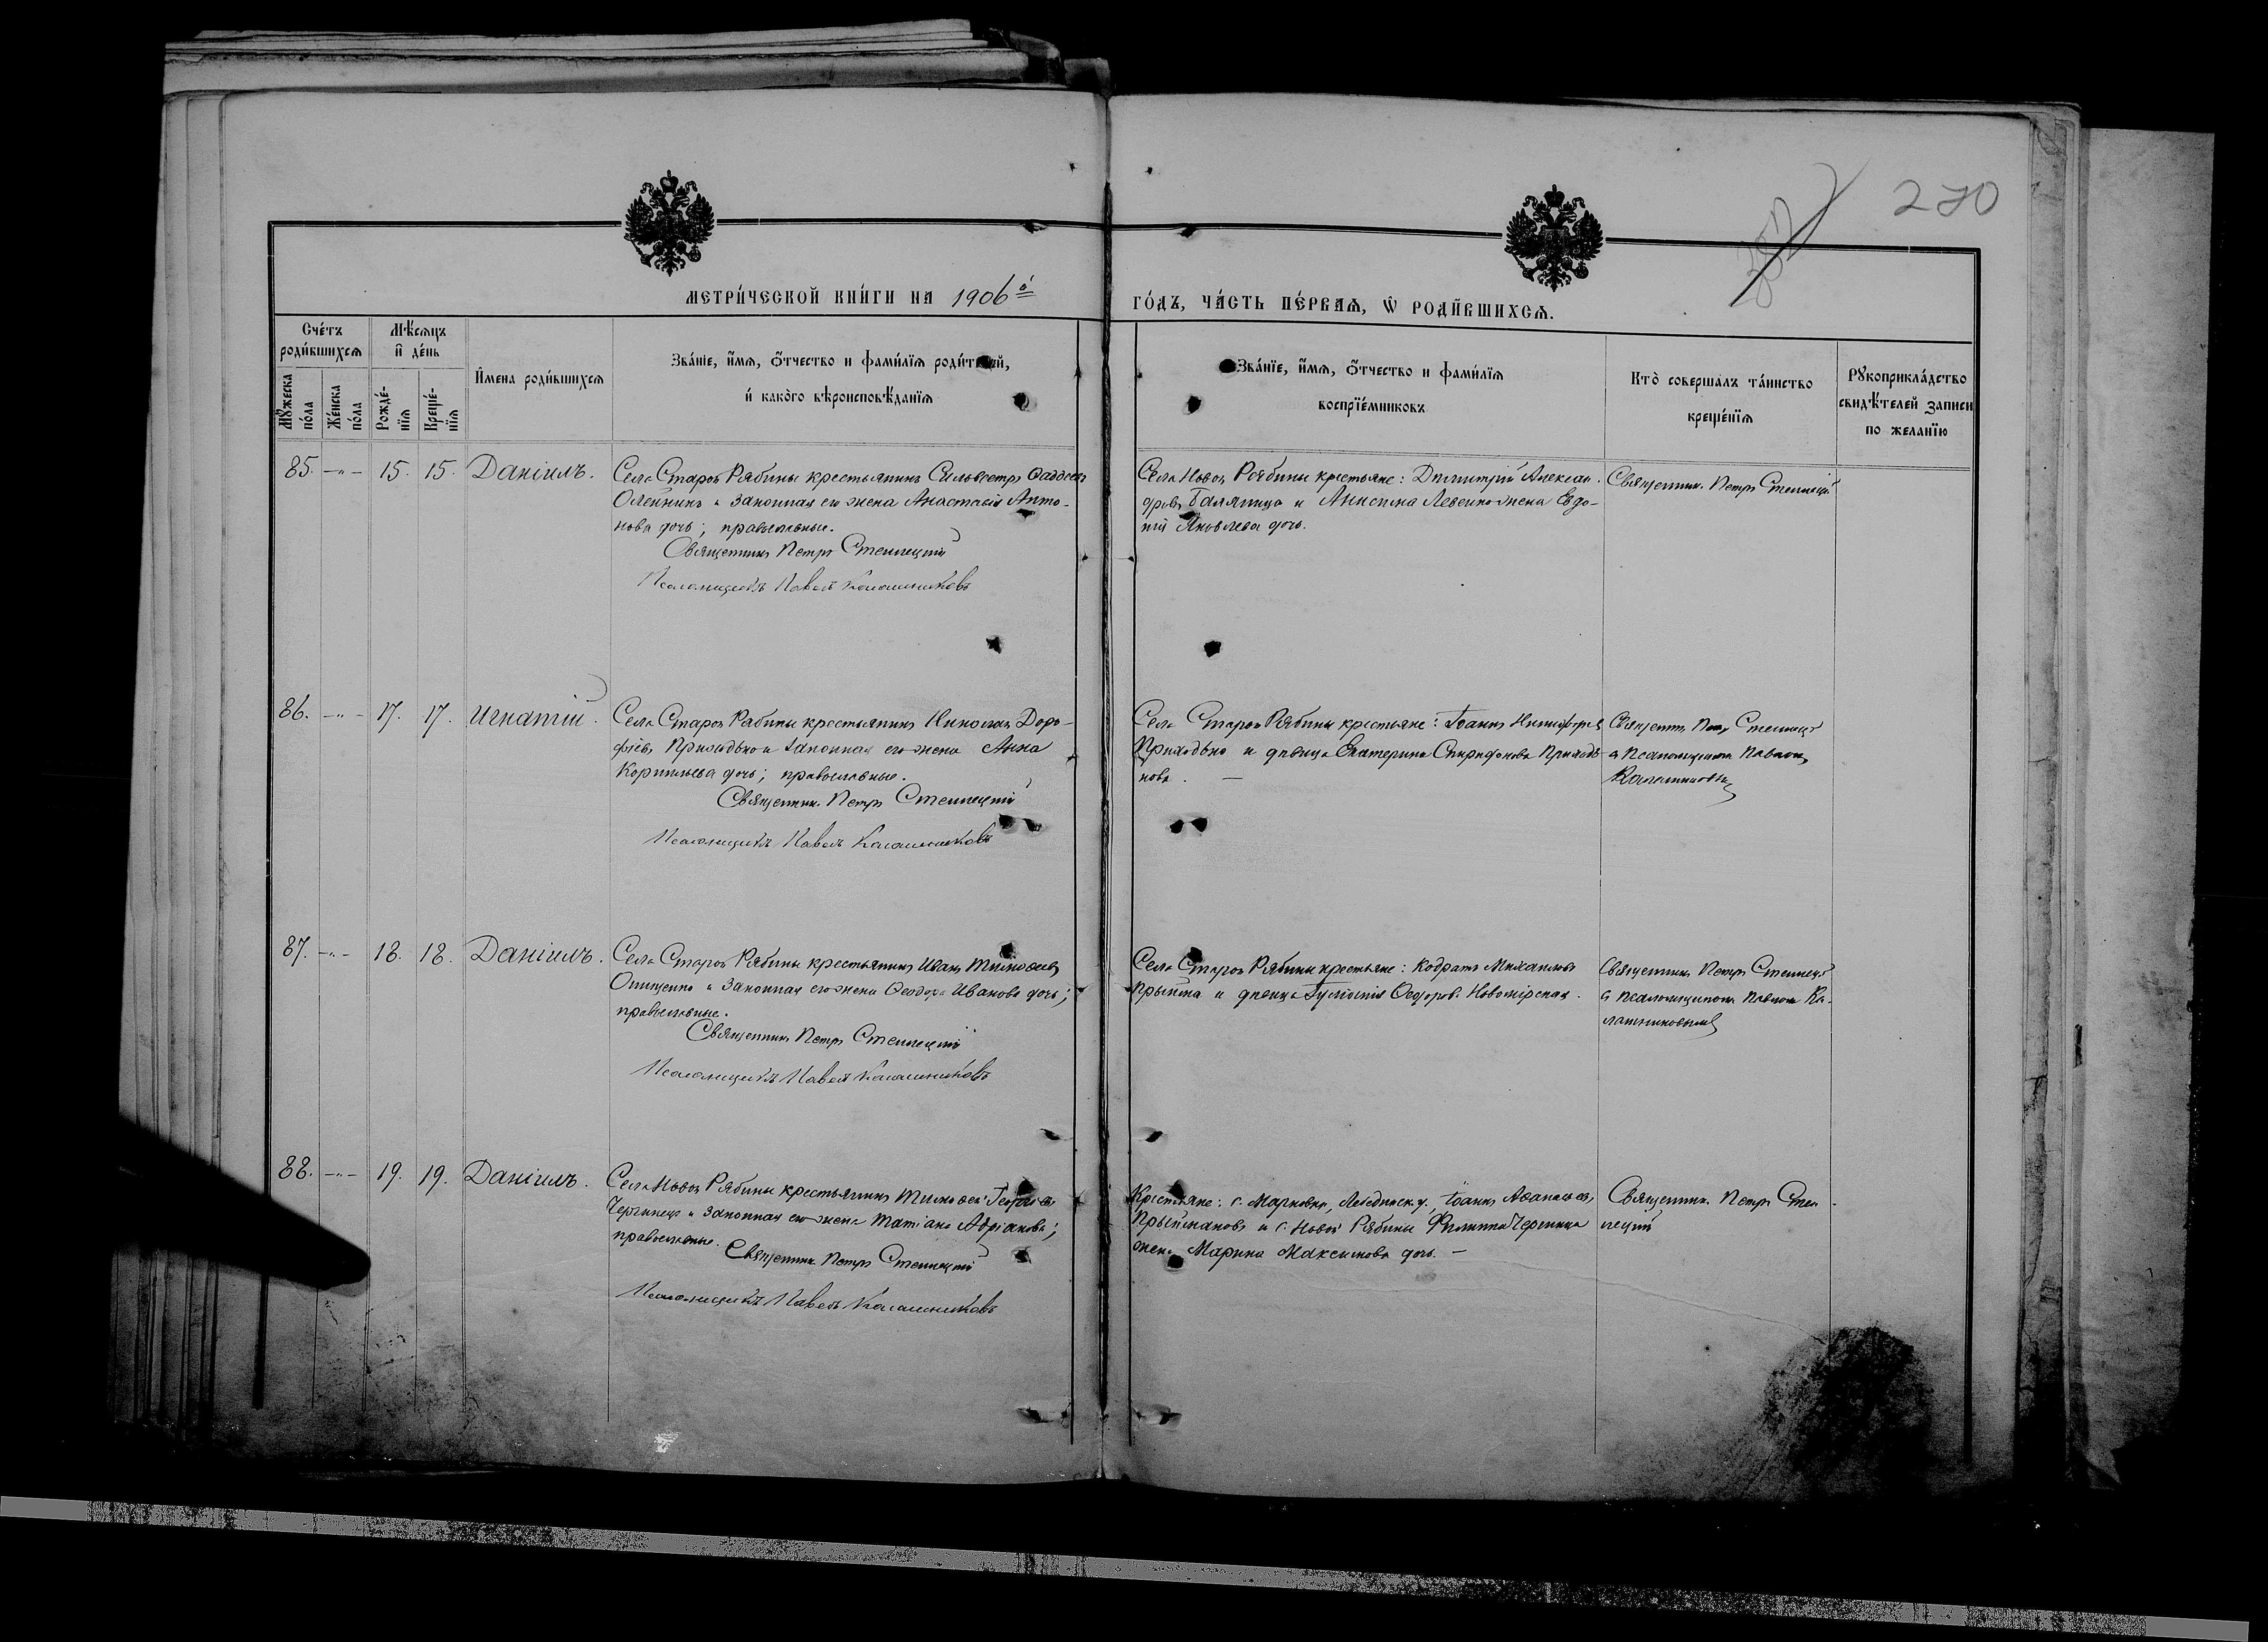 270
МЕТРИ́ЧЕСКОЙ КНИ́ГИ НА 1906й
ГО́ДЪ, ЧА́СТЬ ПЕ́РВАЯ, Ѡ РОДИ́ВШИХСЯ.
Сче́тъ родившихся
Мѣ́сяцъ и де́нь
Имена роди́вшихся
Зва́ніе, и́мя, о́тчество и фами́лія роди́телей,
и како́го вѣроисповѣ́данія
Зва́ніе, и́мя, о́тчество и фами́лія
воспріе́мниковъ
Кто̀ соверша́лъ та́инство
креще́нія
Рꙋкоприкла́дство
свидѣ́телей записи
по желанію
Мꙋжеска по́ла
Же́нска по́ла
Рожде́-нія
Креще́-нія
85. -"- 15. 15. Даніилъ.
Села Старой Рябины крестьянинъ Сильвестръ Фаддеевъ
Олейникъ и законная его жена Анастасія Анто-
нова дочь; православные.
Священникъ Петръ Стеллецкій
Псаломщикъ Павелъ Калашниковъ
Села Новой Рябины крестьяне: Димитрій Алексан-
дровъ и Анисима Левенко жена Евдо-
кія Яковлева дочь.
Священникъ Петръ Стеллецкій
86. -"- 17. 17. Игнатій.
Села Старой Рябины крестьянинъ Николай Доро-
феевъ Приходько и законная его жена Анна
Корнильева дочь; православные.
Священникъ Петръ Стеллецкій
Псаломщикъ Павелъ Калашниковъ
Села Старой Рябины крестьяне: Іоаннъ Никифоровъ
Приходько и дѣвица Екатерина Спиридонова Приходь-
кова. —
Священникъ Петръ Стеллецкій
съ псаломщикомъ Павломъ
Калашниковымъ
87. -"- 18. 18. Даніилъ.
Села Старой Рябины крестьянинъ Иванъ Тимофеевъ
Онищенко и законная его жена Феодора Иванова дочь;
православные.
Священникъ Петръ Стеллецкій
Псаломщикъ Павелъ Калашниковъ
Села Старой Рябины крестьяне: Кодратъ Михаиловъ
и дѣвица Гликерія Феодорова
Священникъ Петръ Стеллецкій
съ псаломщикомъ Павломъ Ка-
лашниковымъ
88. -"- 19. 19. Даніилъ.
Села Новой Рябины крестьянинъ Тимофей Георгіевъ
и законная его жена Татіана Адріанова;
православные.
Священникъ Петръ Стеллецкій
Псаломщикъ Павелъ Калашниковъ
Крестьяне: с. Марковки, Лебединск. у., Іоаннъ Афанасіевъ
и с. Новой Рябины Филиппа
жена Марина Максимова дочь. —
Священникъ Петръ Стел-
лецкій